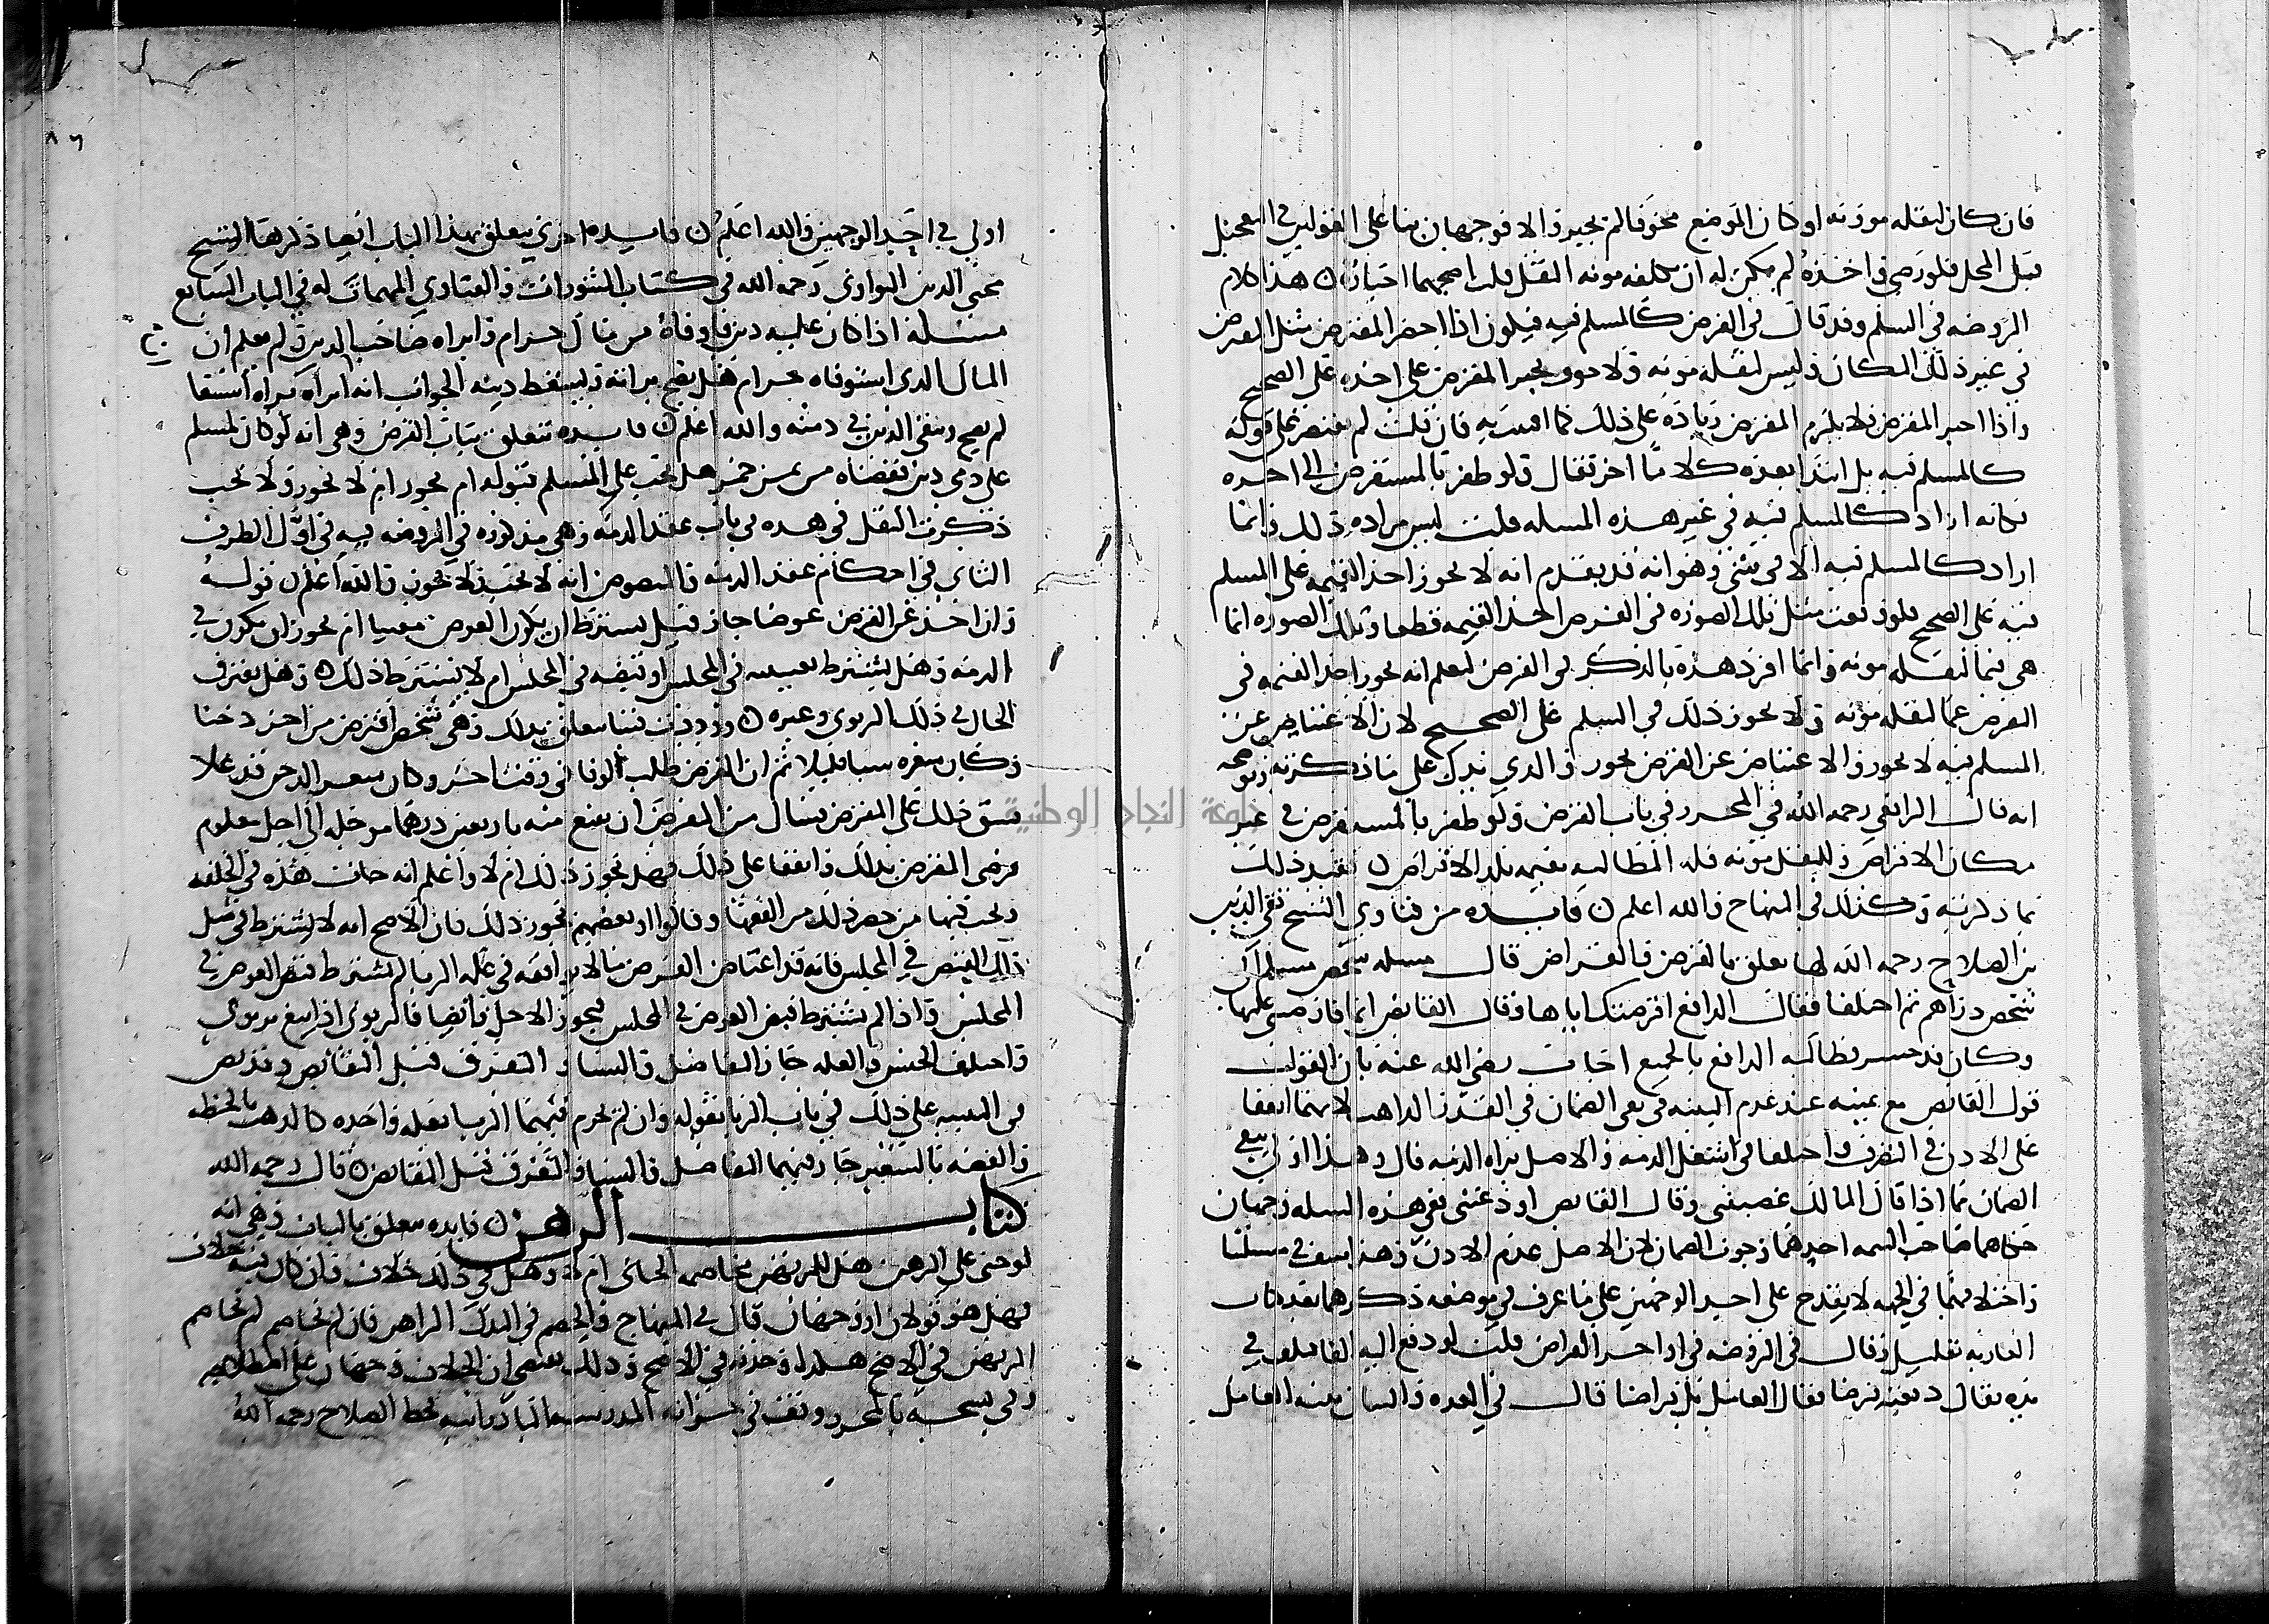 فان كان لنقله مؤونة او كان الموضع مخوفا لم يجبر والا فوجهان بنا على القولين في التعجيل
قبل المحل فلو رضي واخذه لم يكن له ان يكلفه مونه النقل قلت اصحهما اجباره هذا كلام
الروضه في السلم وقد قال في القرض كالمسلم فيه فيكون اذا احضر المقترض مثل القرض
في غير ذلك المكان وليس لنقله مونه ولا خوف يجبر المقرض على اخذه على الصحيح
واذا اجبر المقرض ولا يلزم المقرض زياده على ذلك فان قلت لم يقتصر على قوله
كالمسلم فيه بل ابتدا بعده كلاما اخر فقال ولو ظفر بالمستقرض الى اخره
فكانه اراد كالمسلم فيه في غير هذه المسله قلت ليس مراده ذلك وانما
اراد كالمسلم فيه الا في شي وهو انه قد يقدم انه لا يجوز اخذ القيمه على المسلم
فيه على الصحيح فلو وقعت مثل تلك الصوره في القرض اخذ القيمه قطعا وتلك الصوره انما
هي فيما لنقله مونه وانما افرد هذه بالذكر في القرض ليعلم انه يجوز اخذ القيمه في
القرض عما لنقله مونه ولا يجوز ذلك في السلم على الصحيح لان الاعتياض عن
المسلم فيه لا يجوز والاعتياض عن القرض يجوز والذي يدلك على ما ذكرته ويوضحه
انه قال الرافعي رحمه الله في المحرر في باب القرض ولو ظفر بالمستقرض في غير
مكان الاقراض وللنقل مونه فله المطالبه بقيمه بلد الاقراض فقيد ذلك
بما ذكرته وكذلك في المنهاج والله اعلم فايده من فتاوي الشيخ تقي الدين
بن الصلاح رحمه الله لها تعلق بالقرض والقراض قال مسله شخص سلم الى
شخص دراهم ثم اختلفا فقال الدافع اقرضتك اياها وقال القابض انما قارضتني عليها
وكان قد خسر فطالبه الدافع بالجميع اجاب رضي الله عنه بان القول
قول القابض مع يمينه عند عدم البينه في نفي الضمان في القدر الذاهب لانهما اتفقا
على الاذن في التصرف واختلفا في شغل الذمه والاصل براه الذمه قال وهذا اولى بنفي
الضمان مما اذا قال المالك غصبتني وقال القابض اودعتني ففي هذه المسله وجهان
حكاهما صاحب التتمه احدهما وجوب الضمان لان الاصل عدم الاذن وهذا منتف في مسلتنا
واختلافهما في الجهه لا يقدح على احد الوجهين على ما عرف في موضعه ذكرهما بعد كتاب
العاريه بقليل وقال في الروضه في اواخر القراض قلت لو دفع اليه الفا فتلف في
يده فقال دفعته قرضا فقال العامل بل قراضا قال في العده والبيان بينه العامل
اولى في احد الوجهين والله اعلم فايده اخرى تتعلق بهذا الباب ايضا ذكرها الشيخ
محيي الدين النواوي رحمه الله في كتاب المنثورات والفتاوي المهمات له في الباب السابع
مسئله اذا كان عليه دين فاوفاه من مال حرام وابراه صاحب الدين ولم يعلم ان
المال الذي استوفاه حرام فهل يصح براته ويسقط دينه الجواب انه ابراه براه استيفا
لم يصح وبقي الدين في ذمته والله اعلم فايده تتعلق بباب القرض وهي انه لو كان لمسلم
على ذمي دين فقضاه من ثمن خمر هل يجب على المسلم قبوله ام يجوز ام لا يجوز ولا يجب
ذكرت النقل في هذه في باب عقد الذمه وهي مذكوره في الروضه فيه في اول الطرف
الثاني في احكام عقد الذمه والمنصوص انه لا يجب ولا يجوز والله اعلم قوله
واذا اخذ عن القرض عوضا جاز فهل يشترط ان يكون العوض معينا ام يجوز ان يكون في
الذمه وهل يشترط تعيينه في المجلس او قبضه في المجلس ام لا يشترط ذلك وهل يفترق
الحال في ذلك الربوي وغيره ووردت فتيا تتعلق بذلك وهي شخص اقترض من اخر دخنا
وكان سعره شيا قليلا ثم ان المقرض طلب الوفا في وقت اخر وكان سعر الدخن قد غلا
فشق ذلك على المقترض فسال من المقرض ان يبيع منه باربعين درهما موجله الى اجل معلوم
فرضي المقرض بذلك واتفقا على ذلك فهل يجوز ذلك ام لا واعلم انه جات هذه في الحلقه
وبحث فيها من حضر ذلك من الفقها وقالوا او بعضهم يجوز ذلك فان الاصح انه لا يشترط في مثل
ذلك القبض في المجلس فانه قد اعتاض عن القرض ما لا يوافقه في عله الربا لم يشترط قبض العوض في
المجلس واذا لم يشترط قبض العوض في المجلس فيجوز الاجل وايضا فالربوي اذا بيع بربوي
واختلف الجنس والعله جاز التفاضل والنسا والتفرق قبل التقابض وقد نص
في التنبيه على ذلك في باب الربا بقوله وان لم يحرم فيهما الربا بعله واحده كالذهب بالحنطه
والفضه بالشعير جاز فيهما التفاضل والنسا والتفرق قبل التقابض قال رحمه الله
كتاب الرهن فايده تتعلق بالباب وهي انه
لو جني على الرهن هل للمرتهن مخاصمه الجاني ام لا وهل في ذلك خلاف وان كان فيه خلاف
فهل هو قولان او وجهان قال في المنهاج والخصم في البدل الراهن فان لم يخاصم لم يخاصم
المرتهن في الاصح هكذا وجدته في الاصح وذلك يقتضي ان الخلاف وجهان على اصطلاحه
وفي نسخه بالمحرر وقف في خزانه المدرسه البادرائيه بخط الصلاح رحمه الله
جامعة النجاح الوطنية